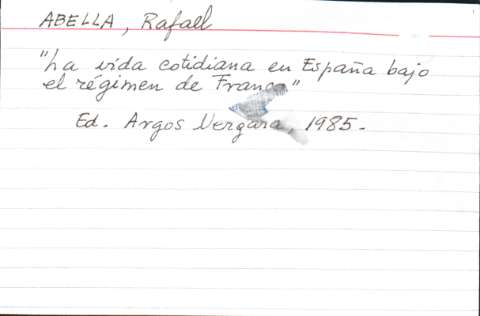 ABELLA, Rafaell
"La vida cotidiana en España bajo
el régimen de Franco"
Ed. Argos Vergara, 1985.-